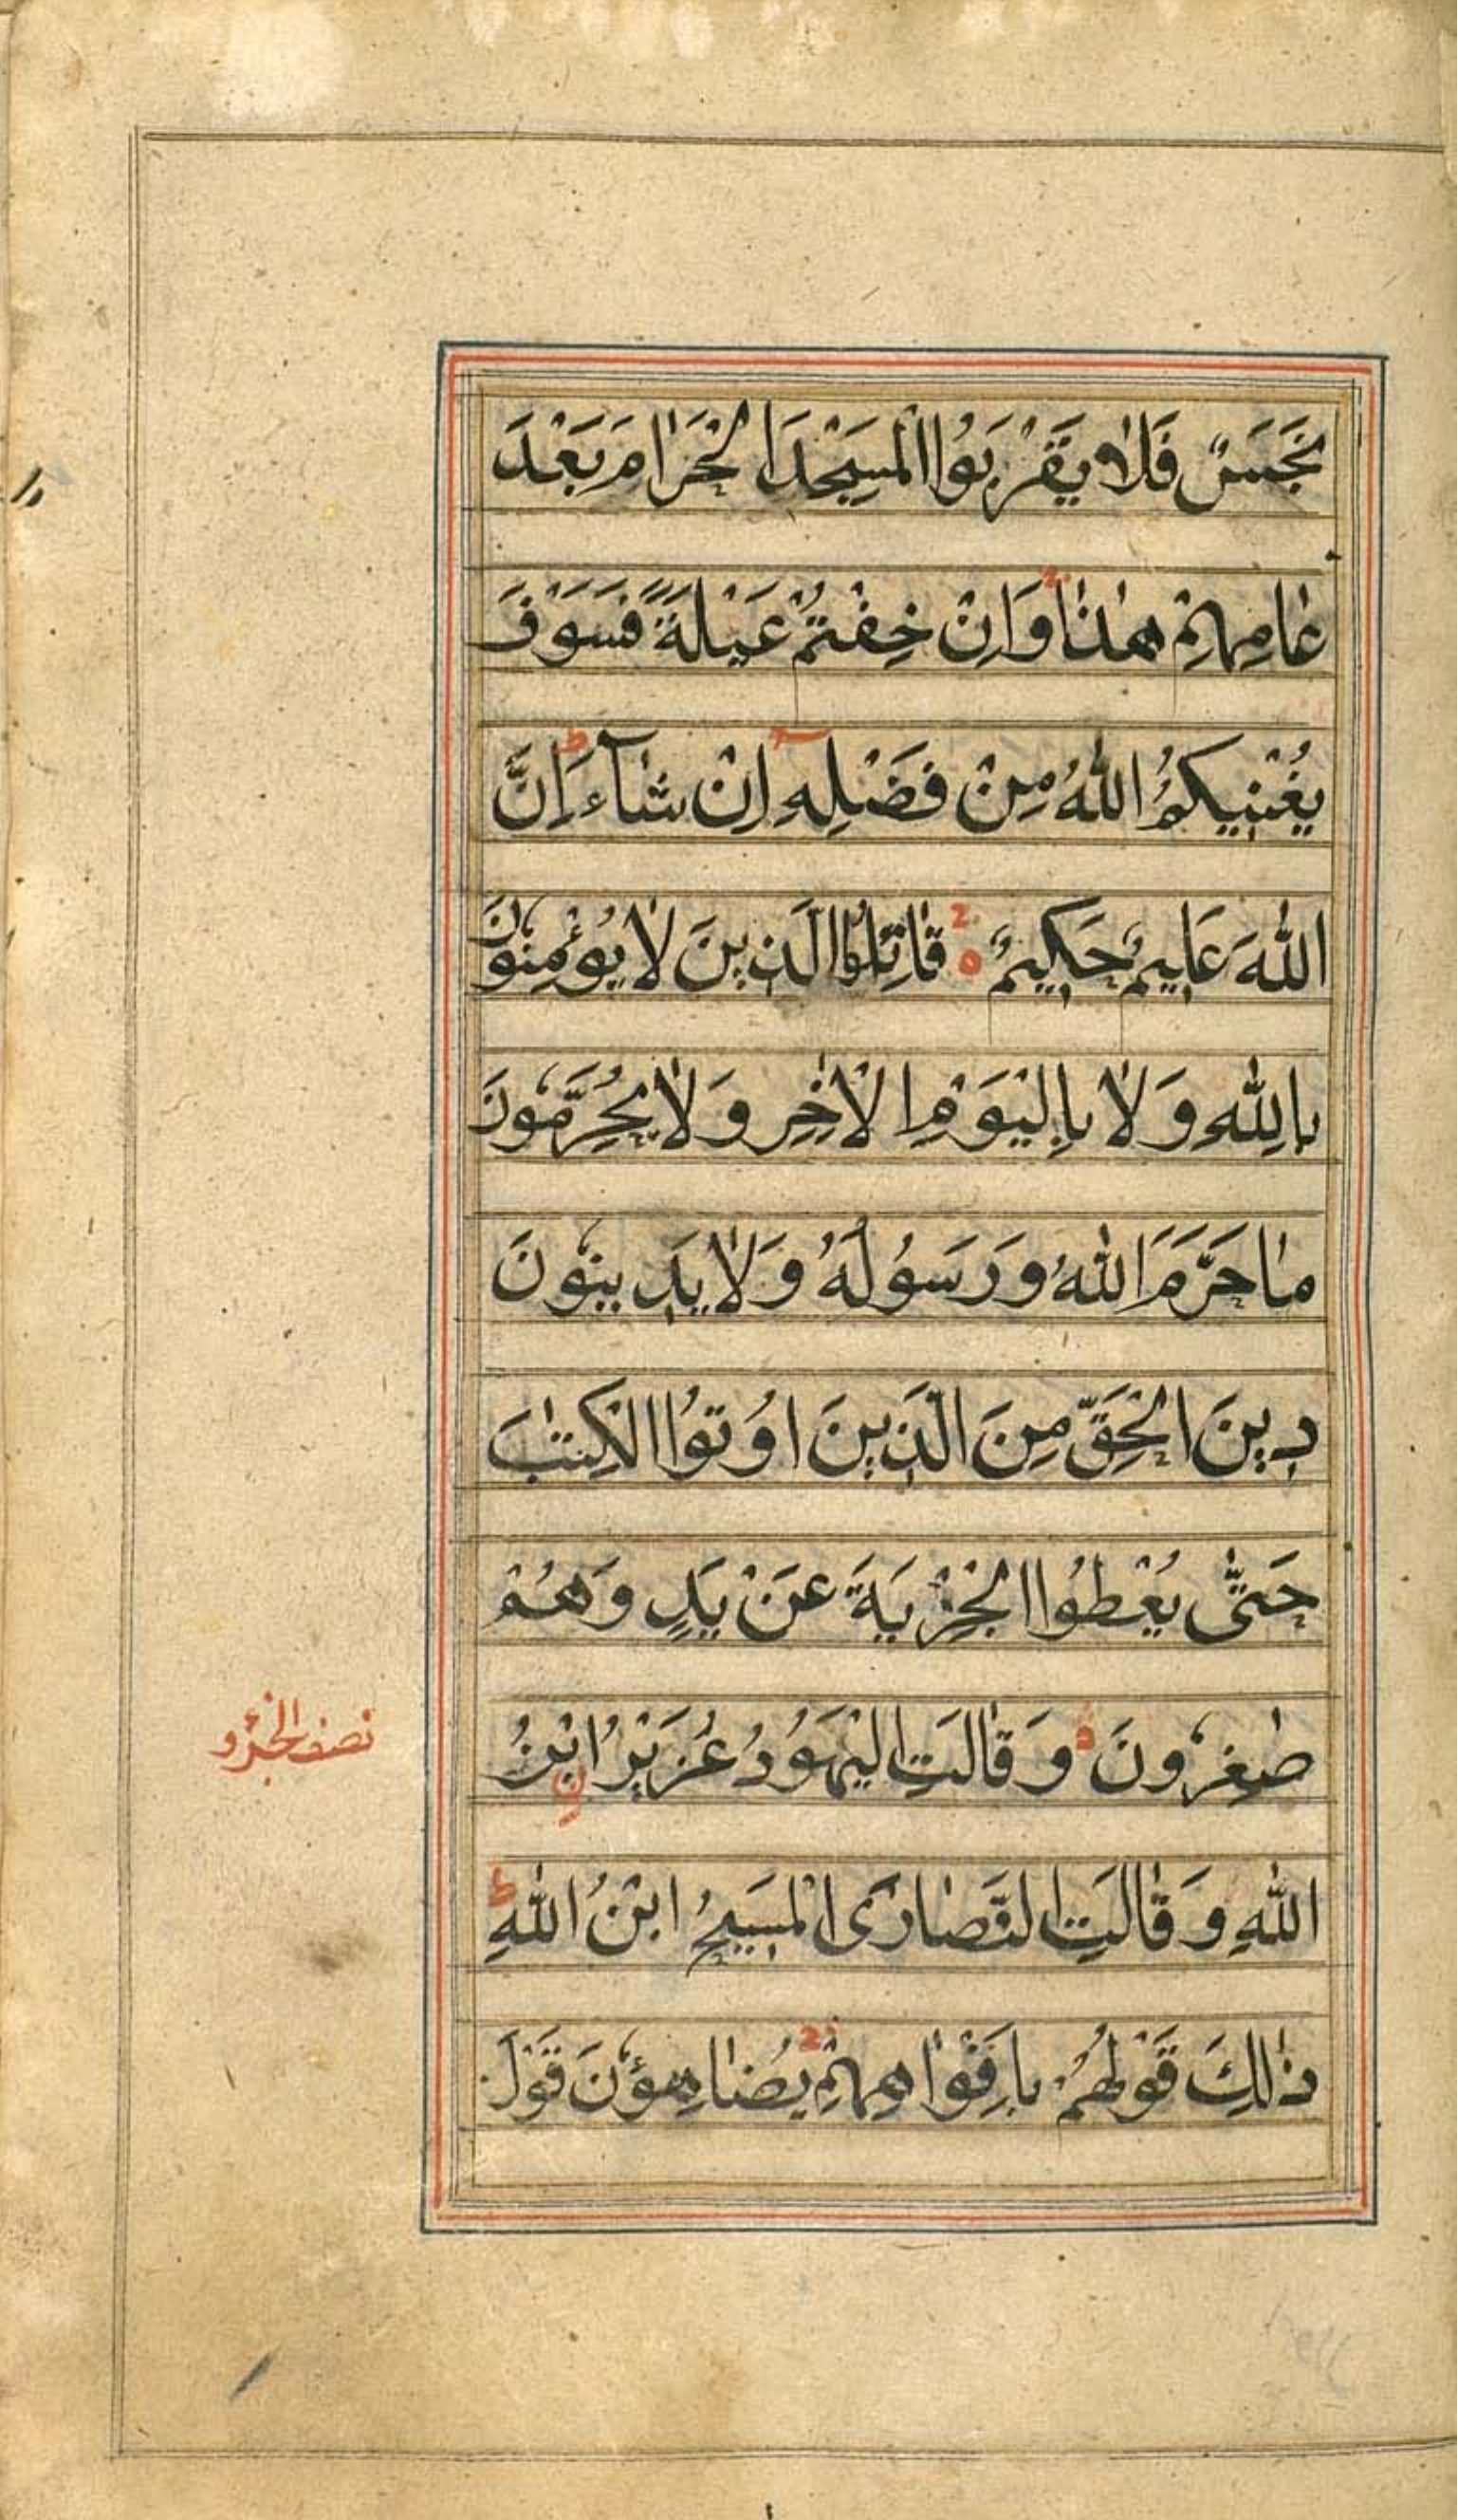 نَجَسٌ فَلَا يَقْرَبُوا الْمَسْجِدَ الْحَرَامَ بَعْدَ
عَامِهِمْ هٰذَا وَاِنْ خِفْتُمْ عَيْلَةً فَسَوْفَ
يُغْنِيكُمُ اللّٰهُ مِنْ فَضْلِهٖ اِنْ شَآءَ ط اِنَّ
اللّٰهَ عَلِيمٌ حَكِيمٌ ه قَاتِلُوا الَّذِينَ لَا يُؤْمِنُونَ
بِاللّٰهِ وَلَا بِالْيَوْمِ الْاٰخِرِ وَلَا يُحَرِّمُونَ
مَا حَرَّمَ اللّٰهُ وَرَسُولُهُ وَلَا يَدِينُونَ
دِينَ الْحَقِّ مِنَ الَّذِينَ اُوتُوا الْكِتٰبَ
حَتّٰى يُعْطُوا الْجِزْيَةَ عَنْ يَدٍ وَهُمْ
صٰغِرُونَ ه وَقَالَتِ الْيَهُودُ عُزَيْرُ ابْنُ
نصف الجزو
اللّٰهِ وَقَالَتِ النَّصَارَى الْمَسِيحُ ابْنُ اللّٰهِ ط
ذٰلِكَ قَوْلُهُمْ بِاَفْوَاهِهِمْ يُضَاهِؤُنَ قَوْلَ